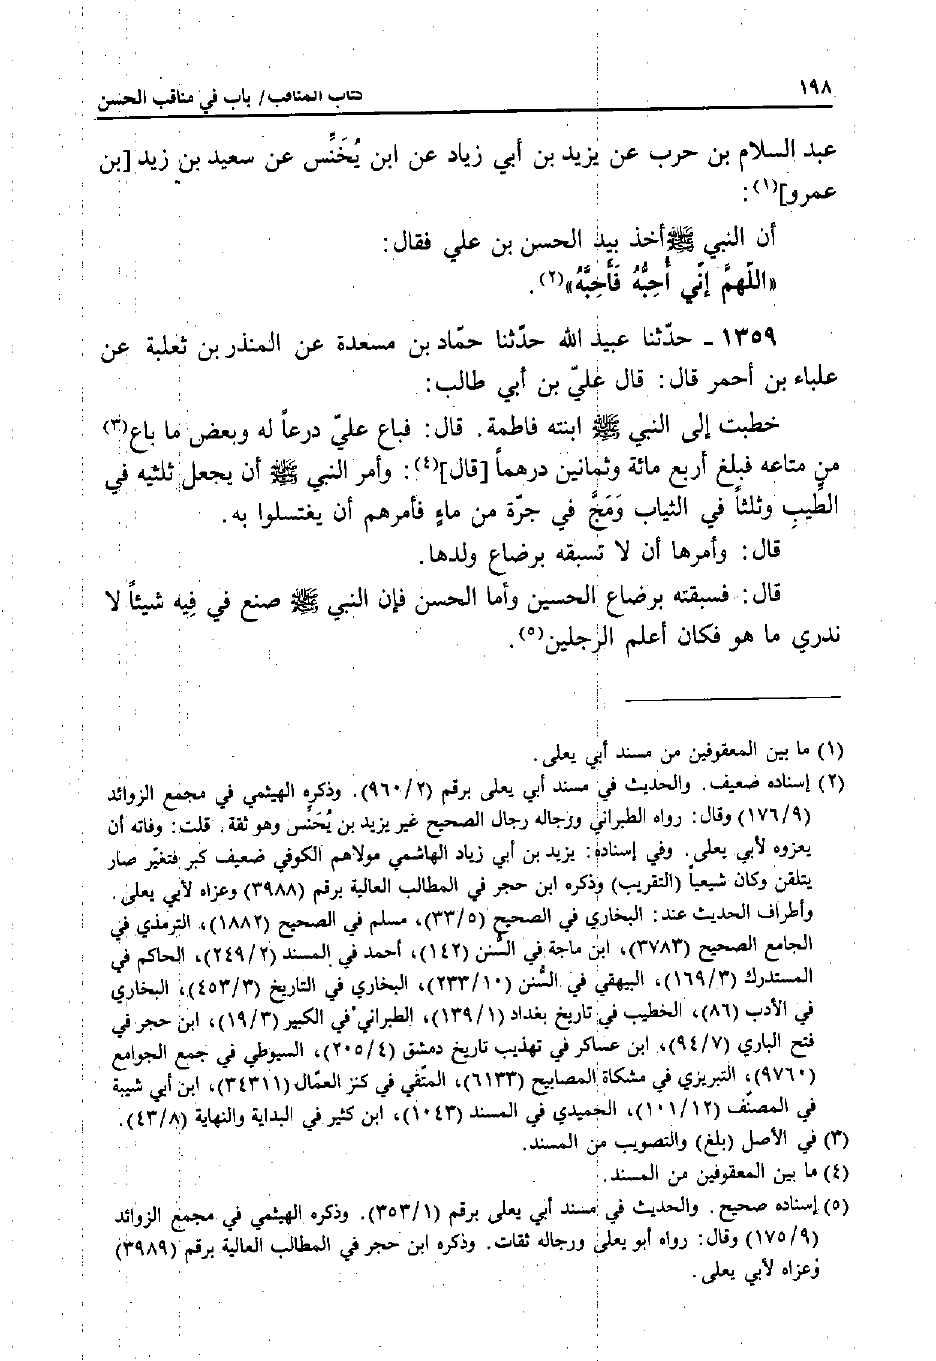 ١٩٨
كتاب المناقب/ باب في مناقب الحسن
عبد السلام بن حرب عن يزيد بن أبي زياد عن ابن يُحَنِّس عن سعيد بن زيد [بن
عمرو](١):
أن النبي ﷺ أخذ بيد الحسن بن علي فقال:
«اللّهمَّ إنّي أُحِبُّهُ فَأَحِبَّهُ»(٢).
١٣٥٩ ـ حدّثنا عبيد الله حدّثنا حمّاد بن مسعدة عن المنذر بن ثعلبة عن
علباء بن أحمر قال: قال عليّ بن أبي طالب:
خطبت إلى النبي ﷺ ابنته فاطمة. قال: فباع عليّ درعاً له وبعض ما باع(٣)
من متاعه فبلغ أربع مائة وثمانين درهماً [قال](٤): وأمر النبي ﷺ أن يجعل ثلثيه في
الطِّيبِ وثلثاً في الثياب وَمَجَّ في جرّة من ماءٍ فأمرهم أن يغتسلوا به.
قال: وأمرها أن لا تسبقه برضاع ولدها.
قال: فسبقته برضاع الحسين وأما الحسن فإن النبي ﷺ صنع في فِيه شيئاً لا
ندري ما هو فكان أعلم الرجلين(٥).
(١) ما بين المعقوفين من مسند أبي يعلى.
(٢) إسناده ضعيف. والحديث في مسند أبي يعلى برقم (٩٦٠/٢). وذكره الهيثمي في مجمع الزوائد
(١٧٦/٩) وقال: رواه الطبراني ورجاله رجال الصحيح غير يزيد بن يُحَنَّس وهو ثقة. قلت: وفاته أن
يعزوه لأبي يعلى. وفي إسناده: يزيد بن أبي زياد الهاشمي مولاهم الكوفي ضعيف كبر فتغيّر صار
يتلقن وكان شيعياً (التقريب) وذكره ابن حجر في المطالب العالية برقم (٣٩٨٨) وعزاه لأبي يعلى.
وأطراف الحديث عند: البخاري في الصحيح (٣٣/٥)، مسلم في الصحيح (١٨٨٢)، الترمذي في
الجامع الصحيح (٣٧٨٣)، ابن ماجة في السُّنن (١٤٢)، أحمد في المسند (٢٤٩/٢)، الحاكم في
المستدرك (١٦٩/٣)، البيهقي في السُّنن (٢٣٣/١٠)، البخاري في التاريخ (٤٥٣/٣)، البخاري
في الأدب (٨٦)، الخطيب في تاريخ بغداد (١٣٩/١)، الطبراني في الكبير (١٩/٣)، ابن حجر في
فتح الباري (٩٤/٧)، ابن عساكر في تهذيب تاريخ دمشق (٢٠٥/٤)، السيوطي في جمع الجوامع
(٩٧٦٠)، التبريزي في مشكاة المصابيح (٦١٣٣)، المتّقي في كنز العمّال (٣٤٣١١)، ابن أبي شيبة
في المصنّف (١٠١/١٢)، الحميدي في المسند (١٠٤٣)، ابن كثير في البداية والنهاية (٤٣/٨).
(٣) في الأصل (بلغ) والتصويب من المسند.
(٤) ما بين المعقوفين من المسند.
(٥) إسناده صحيح. والحديث في مسند أبي يعلى برقم (٣٥٣/١). وذكره الهيثمي في مجمع الزوائد
(١٧٥/٩) وقال: رواه أبو يعلى ورجاله ثقات. وذكره ابن حجر في المطالب العالية برقم (٣٩٨٩)
وعزاه لأبي يعلى.